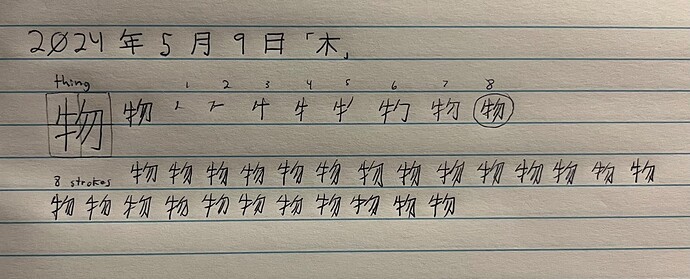 2024 年 5 月 9 日「木」
thing 1 2 3 4 5 6 7 8
物 物 物
8 strokes 物 物 物 物 物 物 物 物 物 物 物 物 物 物
物 物 物 物 物 物 物 物 物 物 物